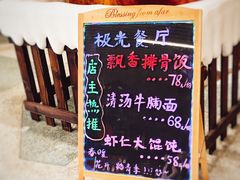 Blessing from afar
极光餐厅
店主热推
飘香排骨饭
78/份
清汤牛腩面
68/份
虾仁大馄饨
58/份